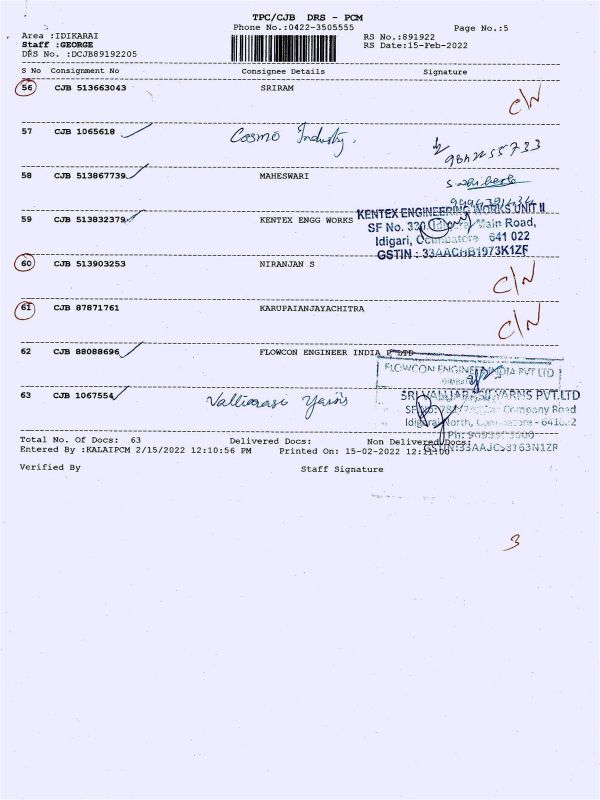 TPC/CJB DRS - PCM
Phone No.:0422-3505555 Page No.:5
Area :IDIKARAI RS No.:891922
Staff :GEORGE RS Date:15-Feb-2022
DRS No. :DCJB89192205
S No Consignment No Consignee Details Signature
56 CJB 513663043 SRIRAM C/N
57 CJB 1065618 Cosmo Industry.
58 CJB 513867739 MAHESWARI
59 CJB 513832379 KENTEX ENGG WORKS
KENTEX ENGINEERING WORKS UNIT II
SF No. 330, Main Road,
Idigari, Coimbatore 641 022
GSTIN : 33AACHB1973K1ZF
60 CJB 513903253 NIRANJAN S C/N
61 CJB 87871761 KARUPAIANJAYACHITRA C/N
62 CJB 88088696 FLOWCON ENGINEER INDIA P LTD
FLOWCON ENGINEER INDIA PVT LTD
63 CJB 1067554 Valliarasi Yarns
SRI YARNS PVT.LTD
Company Road
North,
Total No. Of Docs: 63 Delivered Docs: Non Delivered Docs:
Entered By :KALAIPCM 2/15/2022 12:10:56 PM Printed On: 15-02-2022 12:11:00
Verified By Staff Signature
3